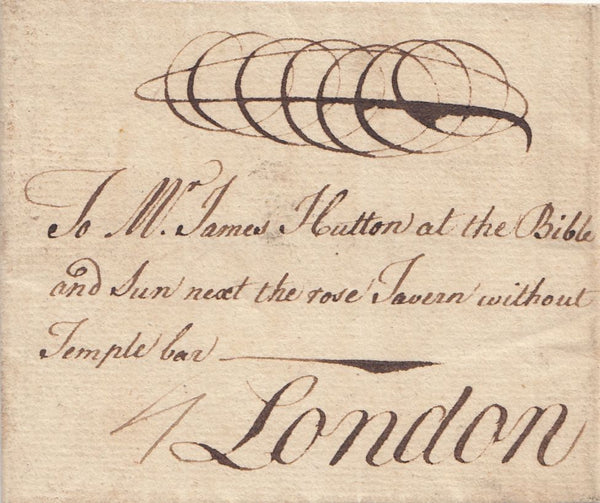 To Mr. James Hutton at the Bible
and Sun next the rose Tavern without
Temple bar
4 London